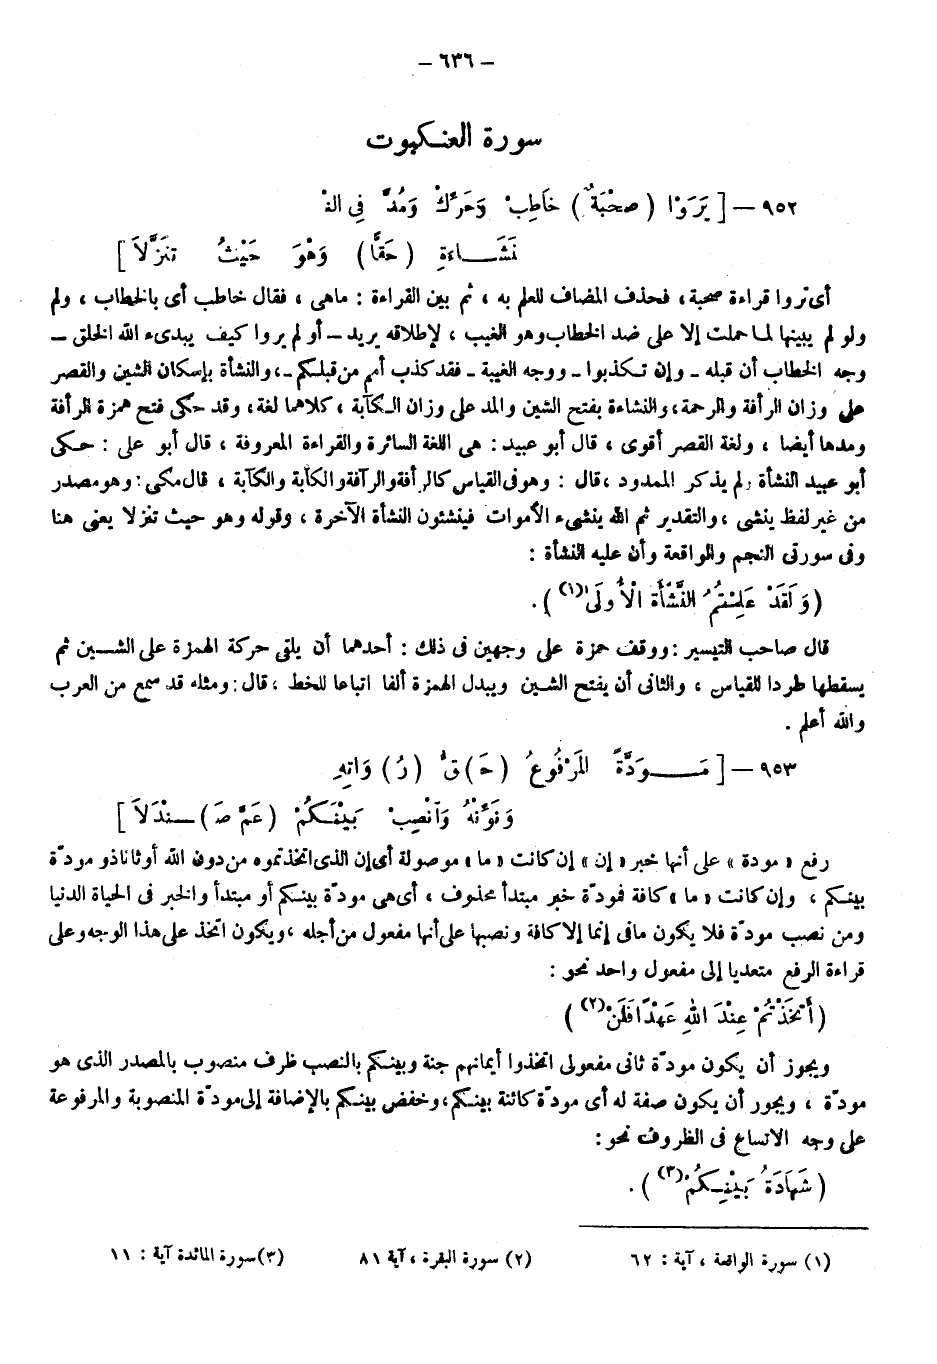 – ٦٣٦ –
سورة العنكبوت
٩٥٢ – [ يَرَوْا ( صُحْبَةٌ ) خَاطِبْ وَحَرِّكْ وَمُدَّ فِي الـْ
نَشَـاءَةِ ( حَقًّا ) وَهْوَ حَيْثُ تَنَزَّلَا ]
أى تروا قراءة صحبة، فحذف المضاف للعلم به ، ثم بين القراءة : ماهى ، فقال خاطب أى بالخطاب ، ولم
ولو لم يبينها لما حملت إلا على ضد الخطاب وهو الغيب ، لإطلاقه يريد – أو لم يروا كيف يبدىء الله الخلق –
وجه الخطاب أن قبله – وإن تكذبوا – ووجه الغيبة – فقد كذب أمم من قبلكم –، والنشأة بإسكان الشين والقصر
على وزان الرأفة والرحمة، والنشاءة بفتح الشين والمد على وزان الكآبة ، كلاهما لغة، وقد حكى فتح همزة الرأفة
ومدها أيضا ، ولغة القصر أقوى ، قال أبو عبيد : هى اللغة السائرة والقراءة المعروفة ، قال أبو على : حكى
أبو عبيد النشأة ولم يذكر الممدود ، قال : وهو فى القياس كالرأفة والرآفة والكأبة والكآبة ، قال مكى : وهو مصدر
من غير لفظ ينشى ، والتقدير ثم الله ينشىء الأموات فينشئون النشأة الآخرة ، وقوله وهو حيث تنزلا يعنى هنا
وفى سورتى النجم والواقعة وأن عليه النشأة :
( وَلَقَدْ عَلِمْتُمُ النَّشْأَةَ الْأُولَىٰ(١) ) .
قال صاحب التيسير : ووقف حمزة على وجهين فى ذلك : أحدهما أن يلقى حركة الهمزة على الشـين ثم
يسقطها طردا للقياس ، والثانى أن يفتح الشين ويبدل الهمزة ألفا اتباعا للخط ، قال : ومثله قد سمع من العرب
والله أعلم .
٩٥٣ – [ مَـوَدَّةً المَرْفُوعُ ( حَ)قُّ ( رُ) وَاتِهِ
وَنَوِّنْهُ وَانْصِبْ بَيْنَكُمْ ( عَمَّ صَ) ـنْدَلَا ]
رفع « مودة » على أنها خبر « إن » إن كانت « ما » موصولة أى إن الذى اتخذتموه من دون الله أوثانا ذو مودّة
بينكم ، وإن كانت « ما » كافة فمودّة خبر مبتدأ محذوف ، أى هى مودّة بينكم أو مبتدأ والخبر فى الحياة الدنيا
ومن نصب مودّة فلا يكون مافى إنما إلا كافة ونصبها على أنها مفعول من أجله ، ويكون اتخذ على هذا الوجه وعلى
قراءة الرفع متعديا إلى مفعول واحد نحو :
( أَتَّخَذْتُمْ عِنْدَ اللهِ عَهْدًا فَلَنْ(٢) )
ويجوز أن يكون مودّة ثانى مفعولى اتخذوا أيمانهم جنة وبينكم بالنصب ظرف منصوب بالمصدر الذى هو
مودّة ، ويجور أن يكون صفة له أى مودّة كائنة بينكم، وخفض بينكم بالإضافة إلى مودّة المنصوبة والمرفوعة
على وجه الاتساع فى الظروف نحو :
( شَهَادَةُ بَيْنِكُمْ(٣) ) .
(١) سورة الواقعة ، آية : ٦٢ (٢) سورة البقرة ، آية ٨١ (٣) سورة المائدة آية : ١١